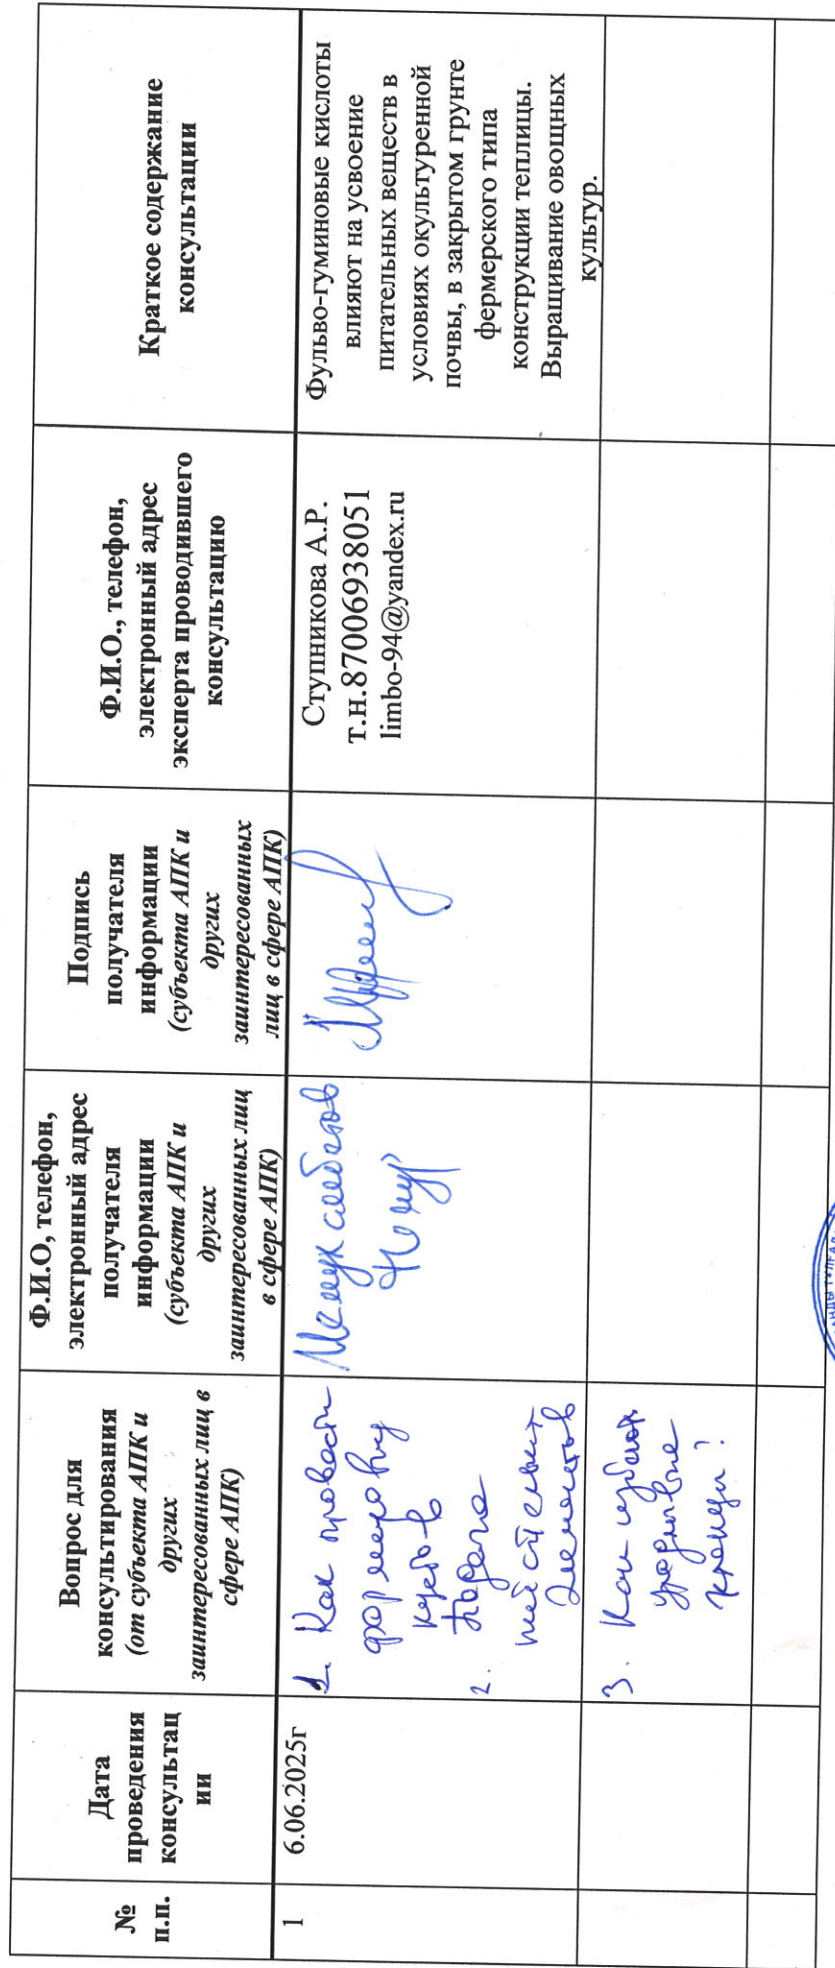 №
п.п.
Дата
проведения
консультац
ии
Вопрос для
консультирования
(от субъекта АПК и
других
заинтересованных лиц в
сфере АПК)
Ф.И.О, телефон,
электронный адрес
получателя
информации
(субъекта АПК и
других
заинтересованных лиц
в сфере АПК)
Подпись
получателя
информации
(субъекта АПК и
других
заинтересованных
лиц в сфере АПК)
Ф.И.О., телефон,
электронный адрес
эксперта проводившего
консультацию
Краткое содержание
консультации
1
6.06.2025г
1. Как провести
формировку
кустов
2.
элементов
Ступникова А.Р.
т.н.87006938051
limbo-94@yandex.ru
Фульво-гуминовые кислоты
влияют на усвоение
питательных веществ в
условиях окультуренной
почвы, в закрытом грунте
фермерского типа
конструкции теплицы.
Выращивание овощных
культур.
3. Как